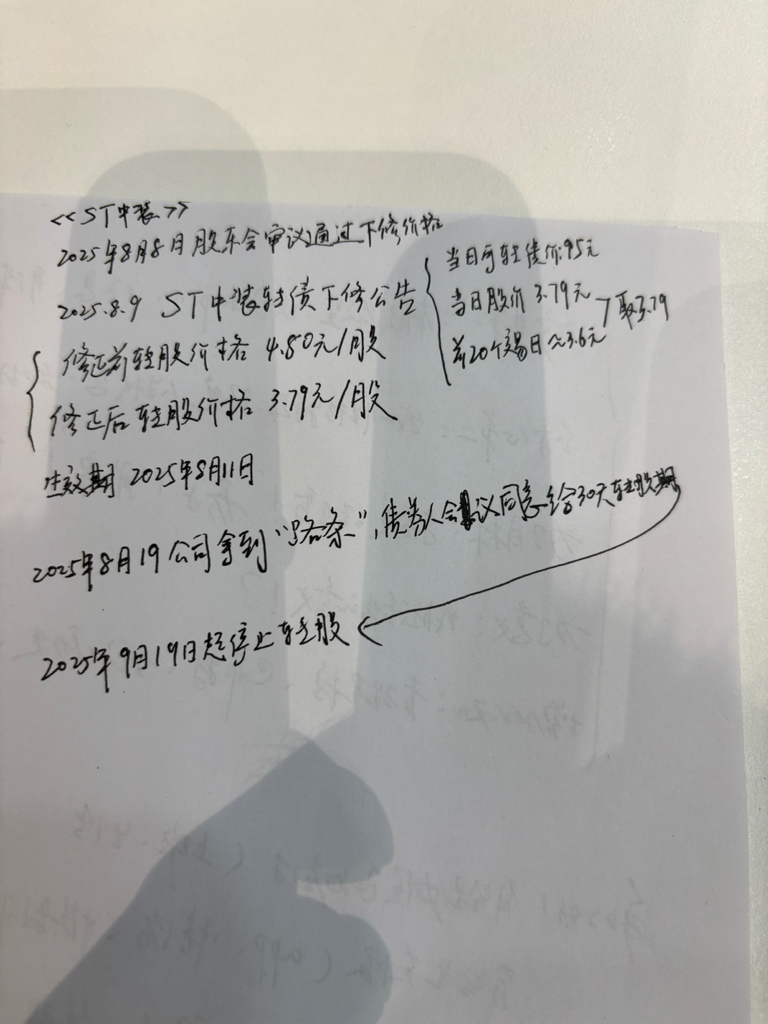 <<ST中装>>
2025年8月8日股东会审议通过下修价格
2025.8.9 ST中装转债下修公告
修正前转股价格 4.80元/股
修正后转股价格 3.79元/股
当日可转债价95元
当日股价 3.79元
前20个交易日≈3.6元
取3.79
生效期 2025年8月11日
2025年8月19公司拿到"路条",债券人会议同意给30天转股期
2025年9月19日起停止转股